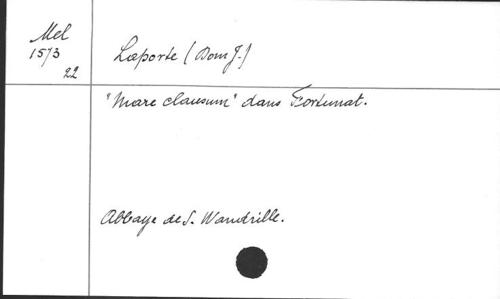 Mel
1573
22
Laporte (Dom J.)
"Mare clausum" dans Fortunat.
Abbaye de S. Wandrille.